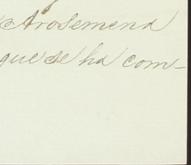 Arosemena
que se ha com-